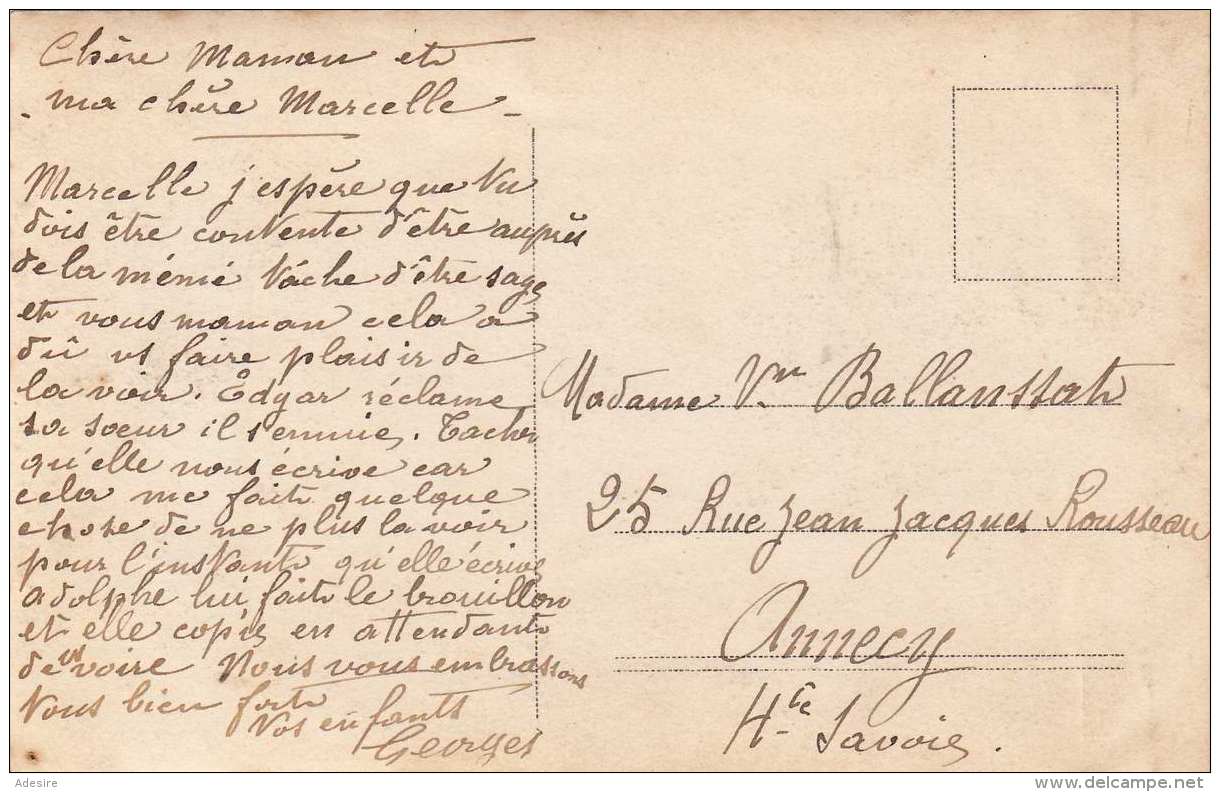 Chère Maman et
- ma chère Marcelle -
Marcelle j'espère que tu
dois être contente d'être auprès
de la mémé tâche d'être sage
et vous maman cela a
dû vs faire plaisir de
la voir. Edgar réclame
sa soeur il s'ennuie. Tachez
qu'elle nous écrive car
cela me fait quelque
chose de ne plus la voir
pour l'instant qu'elle écrive
adolphe lui fait le brouillon
et elle copie en attendant
de vs voire Nous vous embrassons
tous bien fort
Vos enfants
Georges
Madame Vve Ballanssat
25 Rue Jean Jacques Rousseau
Annecy
Hte Savoie.
Adesire
delcampe.net